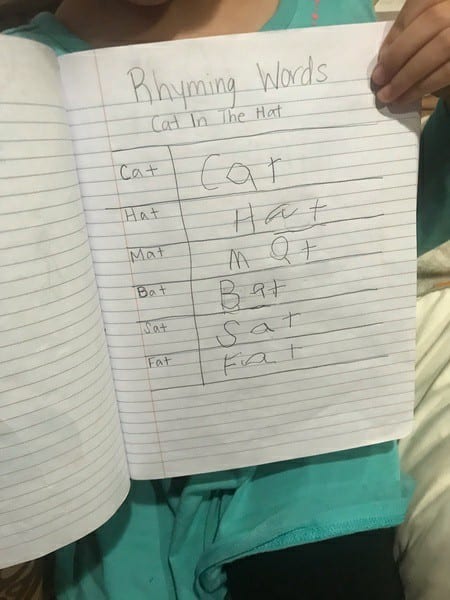 Rhyming Words
Cat In The Hat
Cat Cat
Hat Hat
Mat Mat
Bat Bat
Sat Sat
Fat Fat